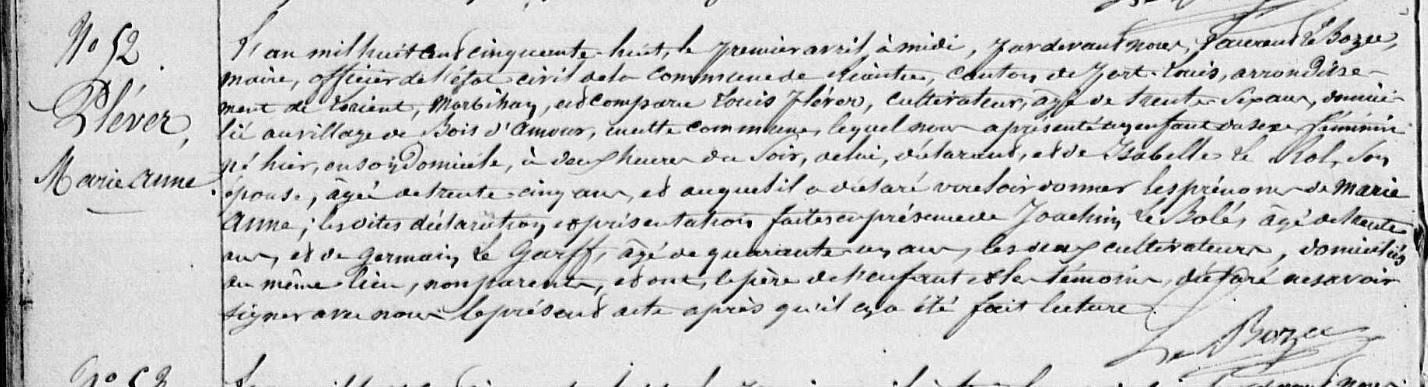 N° 52
Pléver,
Marie Anne.
L'an mil huit cent cinquante-huit, le premier avril à midi, par devant nous, Laurent Le Bozec,
maire, officier de l'état civil de la commune de Riantec, canton de Port-Louis, arrondisse-
ment de Lorient, Morbihan, est comparu Louis Pléver, cultivateur, âgé de trente-six ans, domici-
lié au village de Bois d'amour, en cette commune, lequel nous a présenté un enfant du sexe féminin
né hier, en son domicile, à deux heures du soir, de lui, déclarant, et de Isabelle Le Rol, son
épouse, âgée de trente-cinq ans, et auquel il a déclaré vouloir donner les prénoms de Marie
Anne; les dites déclaration et présentation faites en présence de Joachim Le Bolé, âgé de trente
ans, et de Germain Le Garff, âgé de quarante un ans, les deux cultivateurs, domiciliés
du même lieu, non parents, et ont, le père de l'enfant et les témoins, déclaré ne savoir
signer avec nous le présent acte après qu'il en a été fait lecture.
Le Bozec
N° 53